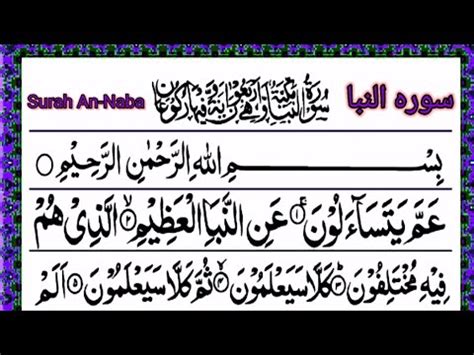 Surah An-Naba سُوْرَةُ النَّبَاِ مَكِّيَّةٌ وَّهِيَ اَرْبَعُوْنَ اٰيَةً وَّفِيْهَا رُكُوْعَانِ سوره النبا
بِسْمِ اللهِ الرَّحْمٰنِ الرَّحِيْمِ
عَمَّ يَتَسَآءَلُوْنَ ۝۱ عَنِ النَّبَاِ الْعَظِيْمِ ۝۲ الَّذِيْ هُمْ
فِيْهِ مُخْتَلِفُوْنَ ۝۳ كَلَّا سَيَعْلَمُوْنَ ۝۴ ثُمَّ كَلَّا سَيَعْلَمُوْنَ ۝۵ اَلَمْ